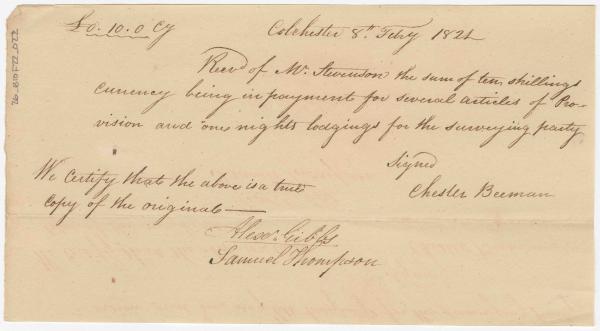 £0. 10. 0 Cy
Colchester 8th. Feby 1824
Recvd of Mr. Stevenson the sum of ten shillings
currency being in payment for several articles of Pro-
vision and one nights lodgings for the surveying party
Signed
Chester Beeman
We Certify that the above is a true
Copy of the original
Alexr. Gibbs
Samuel Thompson